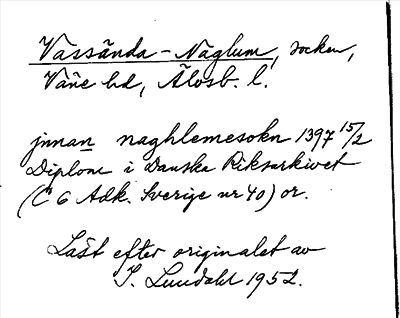 Vassända-Naglum, socken,
Väne hd, Älvsb. l.
jnnan naghlemesokn 1397 15/2
Diplom i Danska Riksarkivet
(C 6 Adk. Sverige nr 40) or.
Läst efter originalet av
I. Lundahl 1952.